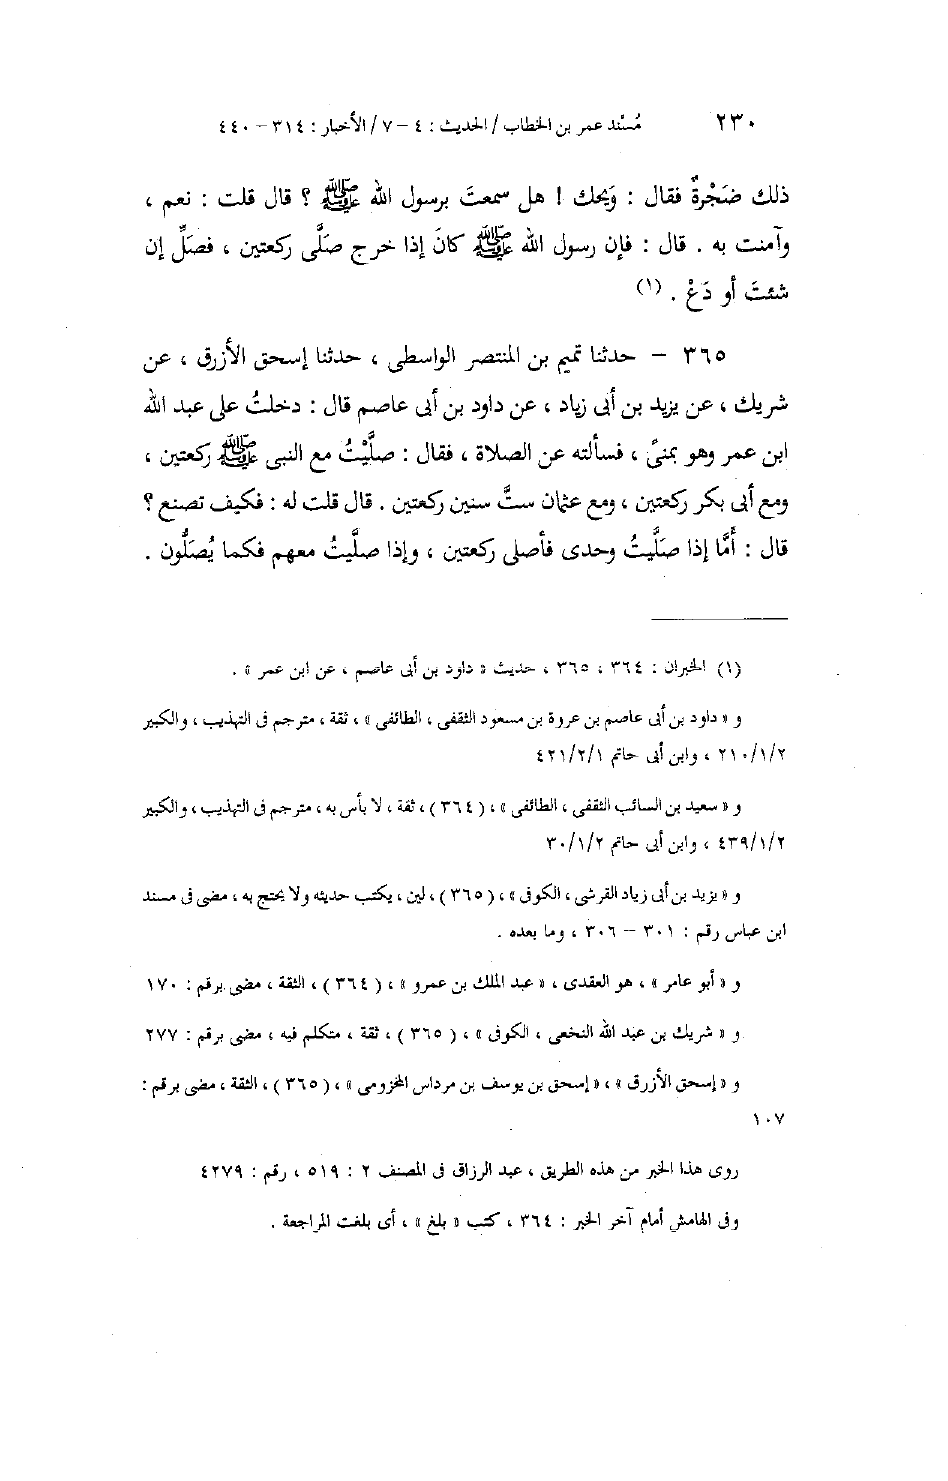 ٢٣٠ مُسْند عمر بن الخطاب / الحديث : ٤ – ٧ / الأخبار : ٣١٤ – ٤٤٠
ذلك ضَجْرةٌ فقال : وَيحك ! هل سمعتَ برسول الله ﷺ ؟ قال قلت : نعم ،
وآمنت به . قال : فإن رسول الله ﷺ كانَ إذا خرج صَلَّى ركعتين ، فصَلِّ إن
شئتَ أو دَعْ . (١)
٣٦٥ – حدثنا تميم بن المنتصر الواسطى ، حدثنا إسحق الأزرق ، عن
شريك ، عن يزيد بن أبى زياد ، عن داود بن أبى عاصم قال : دخلتُ على عبد الله
ابن عمر وهو بمنىً ، فسألته عن الصلاة ، فقال : صلَّيْتُ مع النبى ﷺ ركعتين ،
ومع أبى بكر ركعتين ، ومع عثمان ستَّ سنين ركعتين . قال قلت له : فكيف تصنع ؟
قال : أَمَّا إذا صَلَّيتُ وحدى فأصلى ركعتين ، وإذا صلَّيتُ معهم فكما يُصَلُّون .
(١) الخبران : ٣٦٤ ، ٣٦٥ ، حديث « داود بن أبى عاصم ، عن ابن عمر » .
و « داود بن أبى عاصم بن عروة بن مسعود الثقفى ، الطائفى » ، ثقة ، مترجم فى التهذيب ، والكبير
٢١٠/١/٢ ، وابن أبى حاتم ٤٢١/٢/١
و « سعيد بن السائب الثقفى ، الطائفى » ، ( ٣٦٤ ) ، ثقة ، لا بأس به ، مترجم فى التهذيب ، والكبير
٤٣٩/١/٢ ، وابن أبى حاتم ٣٠/١/٢
و « يزيد بن أبى زياد القرشى ، الكوفى » ، ( ٣٦٥ ) ، لين ، يكتب حديثه ولا يحتج به ، مضى فى مسند
ابن عباس رقم : ٣٠١ – ٣٠٦ ، وما بعده .
و « أبو عامر » ، هو العقدى ، « عبد الملك بن عمرو » ، ( ٣٦٤ ) ، الثقة ، مضى برقم : ١٧٠
و « شريك بن عبد الله النخعى ، الكوفى » ، ( ٣٦٥ ) ، ثقة ، متكلم فيه ، مضى برقم : ٢٧٧
و « إسحق الأزرق » ، « إسحق بن يوسف بن مرداس المخزومى » ، ( ٣٦٥ ) ، الثقة ، مضى برقم :
١٠٧
روى هذا الخبر من هذه الطريق ، عبد الرزاق فى المصنف ٢ : ٥١٩ ، رقم : ٤٢٧٩
وفى الهامش أمام آخر الخبر : ٣٦٤ ، كتب « بلغ » ، أى بلغت المراجعة .